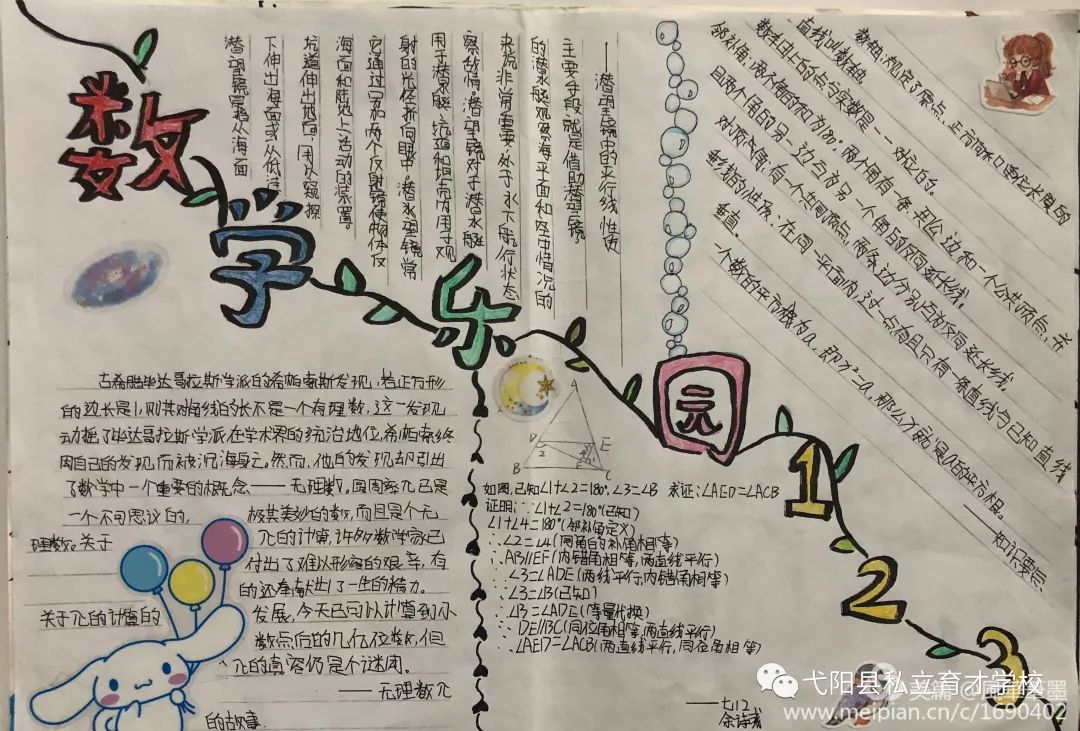 数学乐园
123
——潜望镜中的平行线性质
主要手段就是借助潜望镜。
的潜水艇观察海平面和空中情况的
来说非常重要,处于水下航行状态
察敌情。潜望镜对于潜水艇
用于潜水艇、坑道和坦克内用于观
射的光经折向眼中。潜水望镜常
它通过
和两个反射镜使物体反
海面和陆地上活动的装置。
坑道伸出地面,用以窥探
下伸出海面或从低洼
潜望镜是指从海面
数轴:规定了原点,正方向和单位长度的
直线叫数轴。
数轴上的点与实数是一一对应的。
邻补角:两个角的和为180°,两个角有一条公边和一个公共顶点,并
且两个角的另一边互为另一个角的反向延长线。
对顶角:有一个共同顶点,两条边分别互为反向延长线。
垂线的性质:在同一平面内,过一点有且只有一条直线与已知直线
垂直。
一个数的平方根为a,即x²=a,那么x就是a的平方根。
——知识要点
古希腊毕达哥拉斯学派的希帕索斯发现,若正方形
的边长是1,则其对角线的长不是一个有理数,这一发现
动摇了毕达哥拉斯学派在学术界的统治地位,希帕索终
因自己的发现而被沉海身亡。然而,他的发现却引出
了数学中一个重要的概念——无理数。圆周率π已是
一个不可思议的,
极其美妙的数,而且是个无
理数。关于
π的计算,许多数学家已
付出了难以形容的艰辛,有
的还奉献出了一生的精力。
关于π的计算的
发展,今天已可以计算到小
数点后的几亿位数,但
π的真容仍是个谜团。
——无理数π
的故事
A
D
E
2
B
F
C
如图,已知∠1+∠2=180°,∠3=∠B 求证:∠AED=∠ACB
证明:∵∠1+∠2=180°(已知)
∠1+∠4=180°(邻补角定义)
∴∠2=∠4(同角的补角相等)
∴AB∥EF(内错角相等,两直线平行)
∴∠3=∠ADE(两线平行,内错角相等)
∵∠3=∠B(已知)
∴∠B=∠ADE(等量代换)
∴DE∥BC(同位角相等,两直线平行)
∴∠AED=∠ACB(两直线平行,同位角相等)
——七12
弋阳县私立育才学校
www.meipian.cn/c/1690402